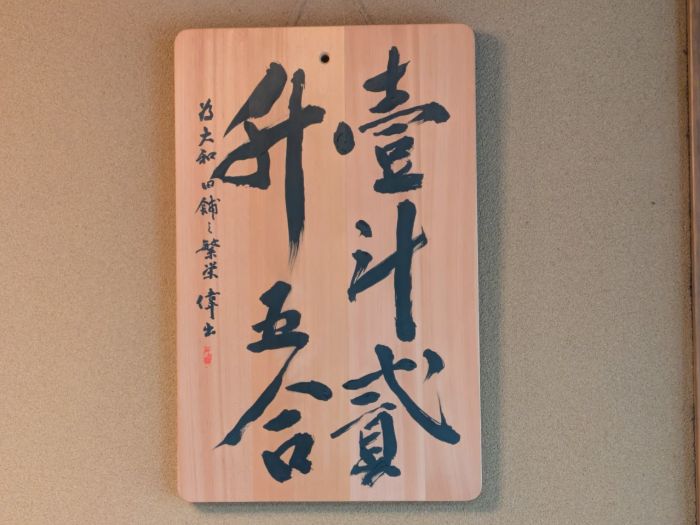 壹斗貳
升五合
為大和田鋪々繁栄偉出